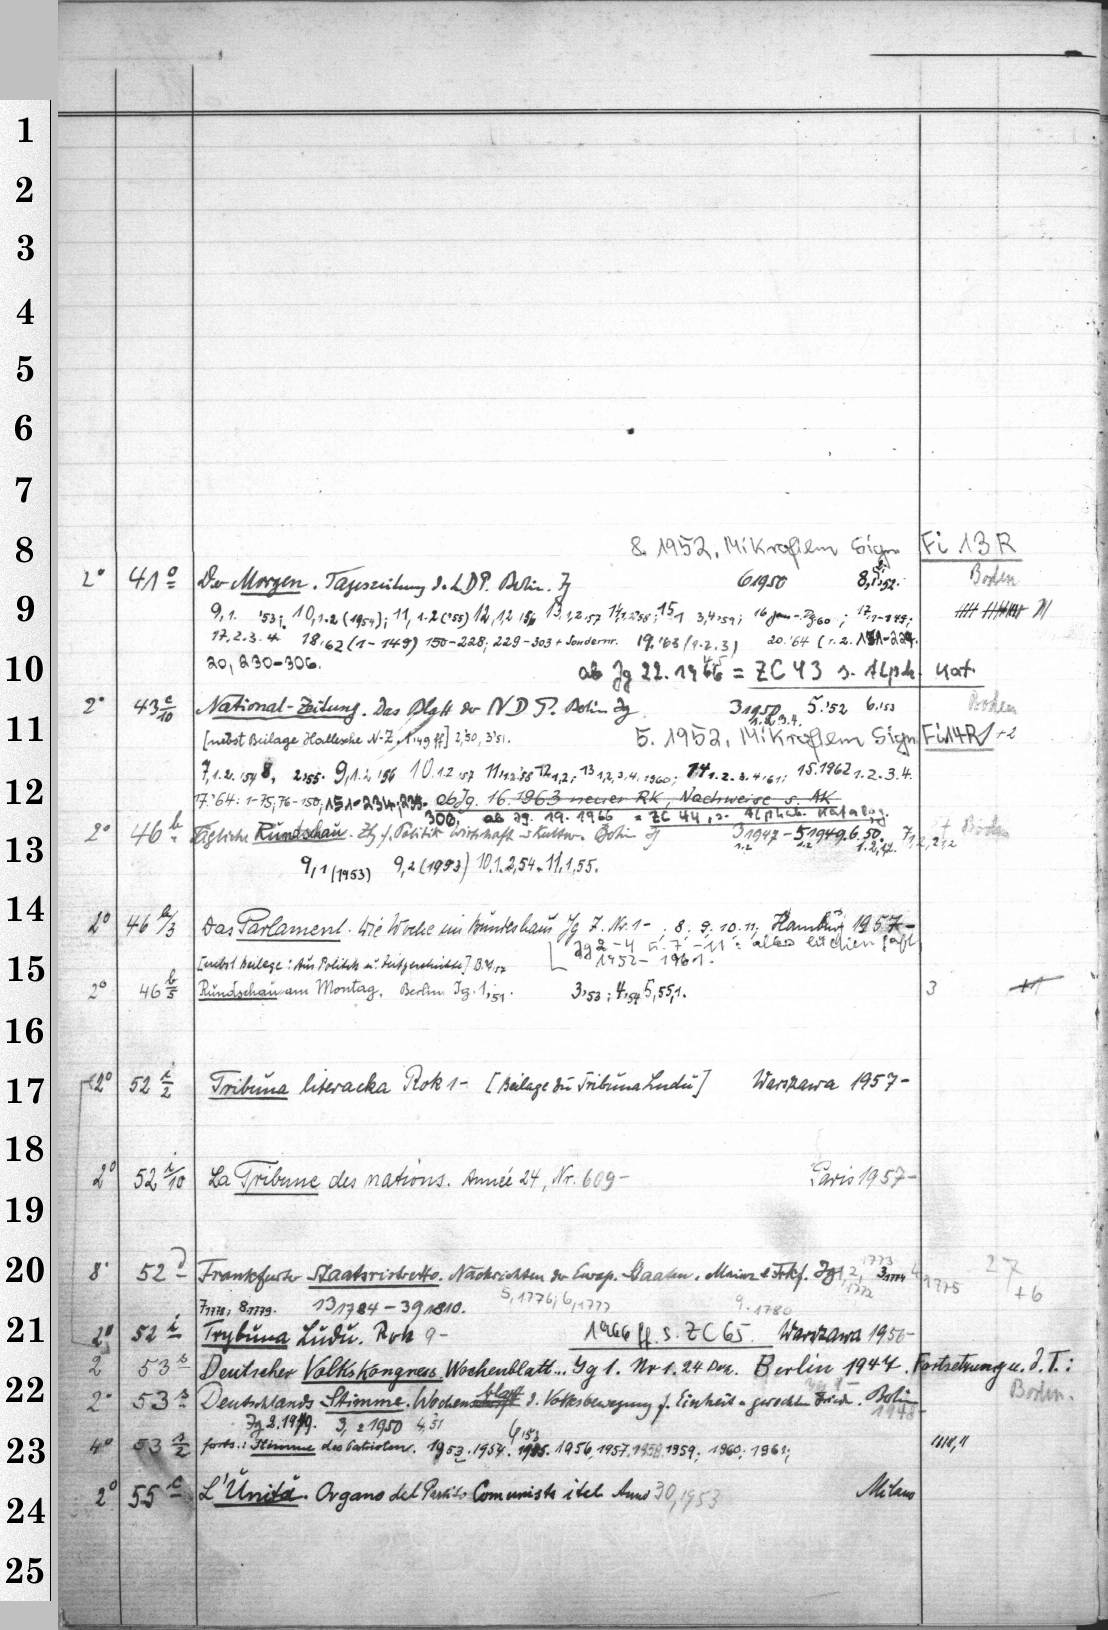 1
2
3
4
5
6
7
8
8. 1952. Mikrofilm Sign Fi 13 R
2° 41 o Der Morgen. Tageszeitung d. LDP. Berlin. Jg 6 1950 8,5.'52. Boden
9
9,1. '53; 10,1.2 (1954); 11, 1.2 ('55) 12,1,2 '56 13,1,2,'57 14,1,2'58; 15,1 3,4,'59;
17.2.3.4. 18,'62 (1-149) 150-228; 229-303 + Sondernr. 19.'63 (1.2.3) 20.'64 (1.2. 151-229.
10
20, 230-306. ab Jg 22. 1966 = ZC 43 s. Alph. Kat.
2° 43 c/10 National-Zeitung. Das Blatt der NDP. Berlin Jg 3 1950 5.'52 6.'53 Boden
11
[nebst Beilage Hallesche N-Z. 1.'49 ff] 2,'50, 3'51. 5. 1952. Mikrofilm Sign Fi 14 R +2
7,1.2. '54 8, 2'55. 9,1.2 '56 10.1.2 '57 13 1,2,3,4. 1960; 14 1.2.3.4 '61; 15.1962 1.2.3.4.
12
17.'64: 1-75; 76-150; 151-234; 235- ab Jg. 16. 1963 neuer RK, Nachweise s. AK
306, ab Jg. 19. 1966 = ZC 44, s. Alphab. Katalog
2° 46 h Tägliche Rundschau. Ztg f. Politik Wirtschaft u Kultur. Berlin Jg 3 1947 - 5 1949, 6,50. Boden
13
9,1 (1953) 9,2 (1953) 10.1.2,54. 11,1,55.
14
2° 46 a/3 Das Parlament. Die Woche im Bundeshaus Jg 7. Nr. 1- . 8. 9, 10. 11, Hamburg 1957-
Jg 2-4 u. 7-11:
1952- 1961.
15
[nebst Beilage: Aus Politik u. Zeitgeschichte] B.
2° 46 b/5 Rundschau am Montag. Berlin Jg. 1,51. 3,53; 4,54 5,55,1. 3
16
17
2° 52 i/2 Tribuna literacka Rok 1- [Beilage zu Tribuna Ludu] Warszawa 1957-
18
2° 52 i/10 La Tribune des nations. Année 24, Nr. 609- Paris 1957-
19
20
8° 52 Frankfurter Staatsristretto. Nachrichten der Europ. Staaten. Mainz & Frkf. 1773 27
1772 1775 +6
7,1778; 8,1779. 13 1784 - 39 1810. 5, 1776; 6, 1777 9. 1780
21
2° 52 i Trybuna Ludu. Rok 9- 1966 ff. s. ZC 65. Warszawa 1956-
2 53 Deutscher Volkskongress Wochenblatt... Jg 1. Nr 1. 24 Dez. Berlin 1947. Fortsetzung u. d. T.:
22
2° 53 Deutschlands Stimme. Wochenblatt d. Volksbewegung f. Einheit u gerecht. Fried. Berlin 1948- Boden.
Jg 2.1949. 3, 1950 4,51 6,'53
23
4° 53 1/2 forts.: Stimme des Patrioten. 1953. 1954. 1955. 1956, 1957. 1958. 1959; 1960; 1961;
24
2° 55 c L'Unità. Organo del Partito Comunista ital Anno 30,1953 Milano
25